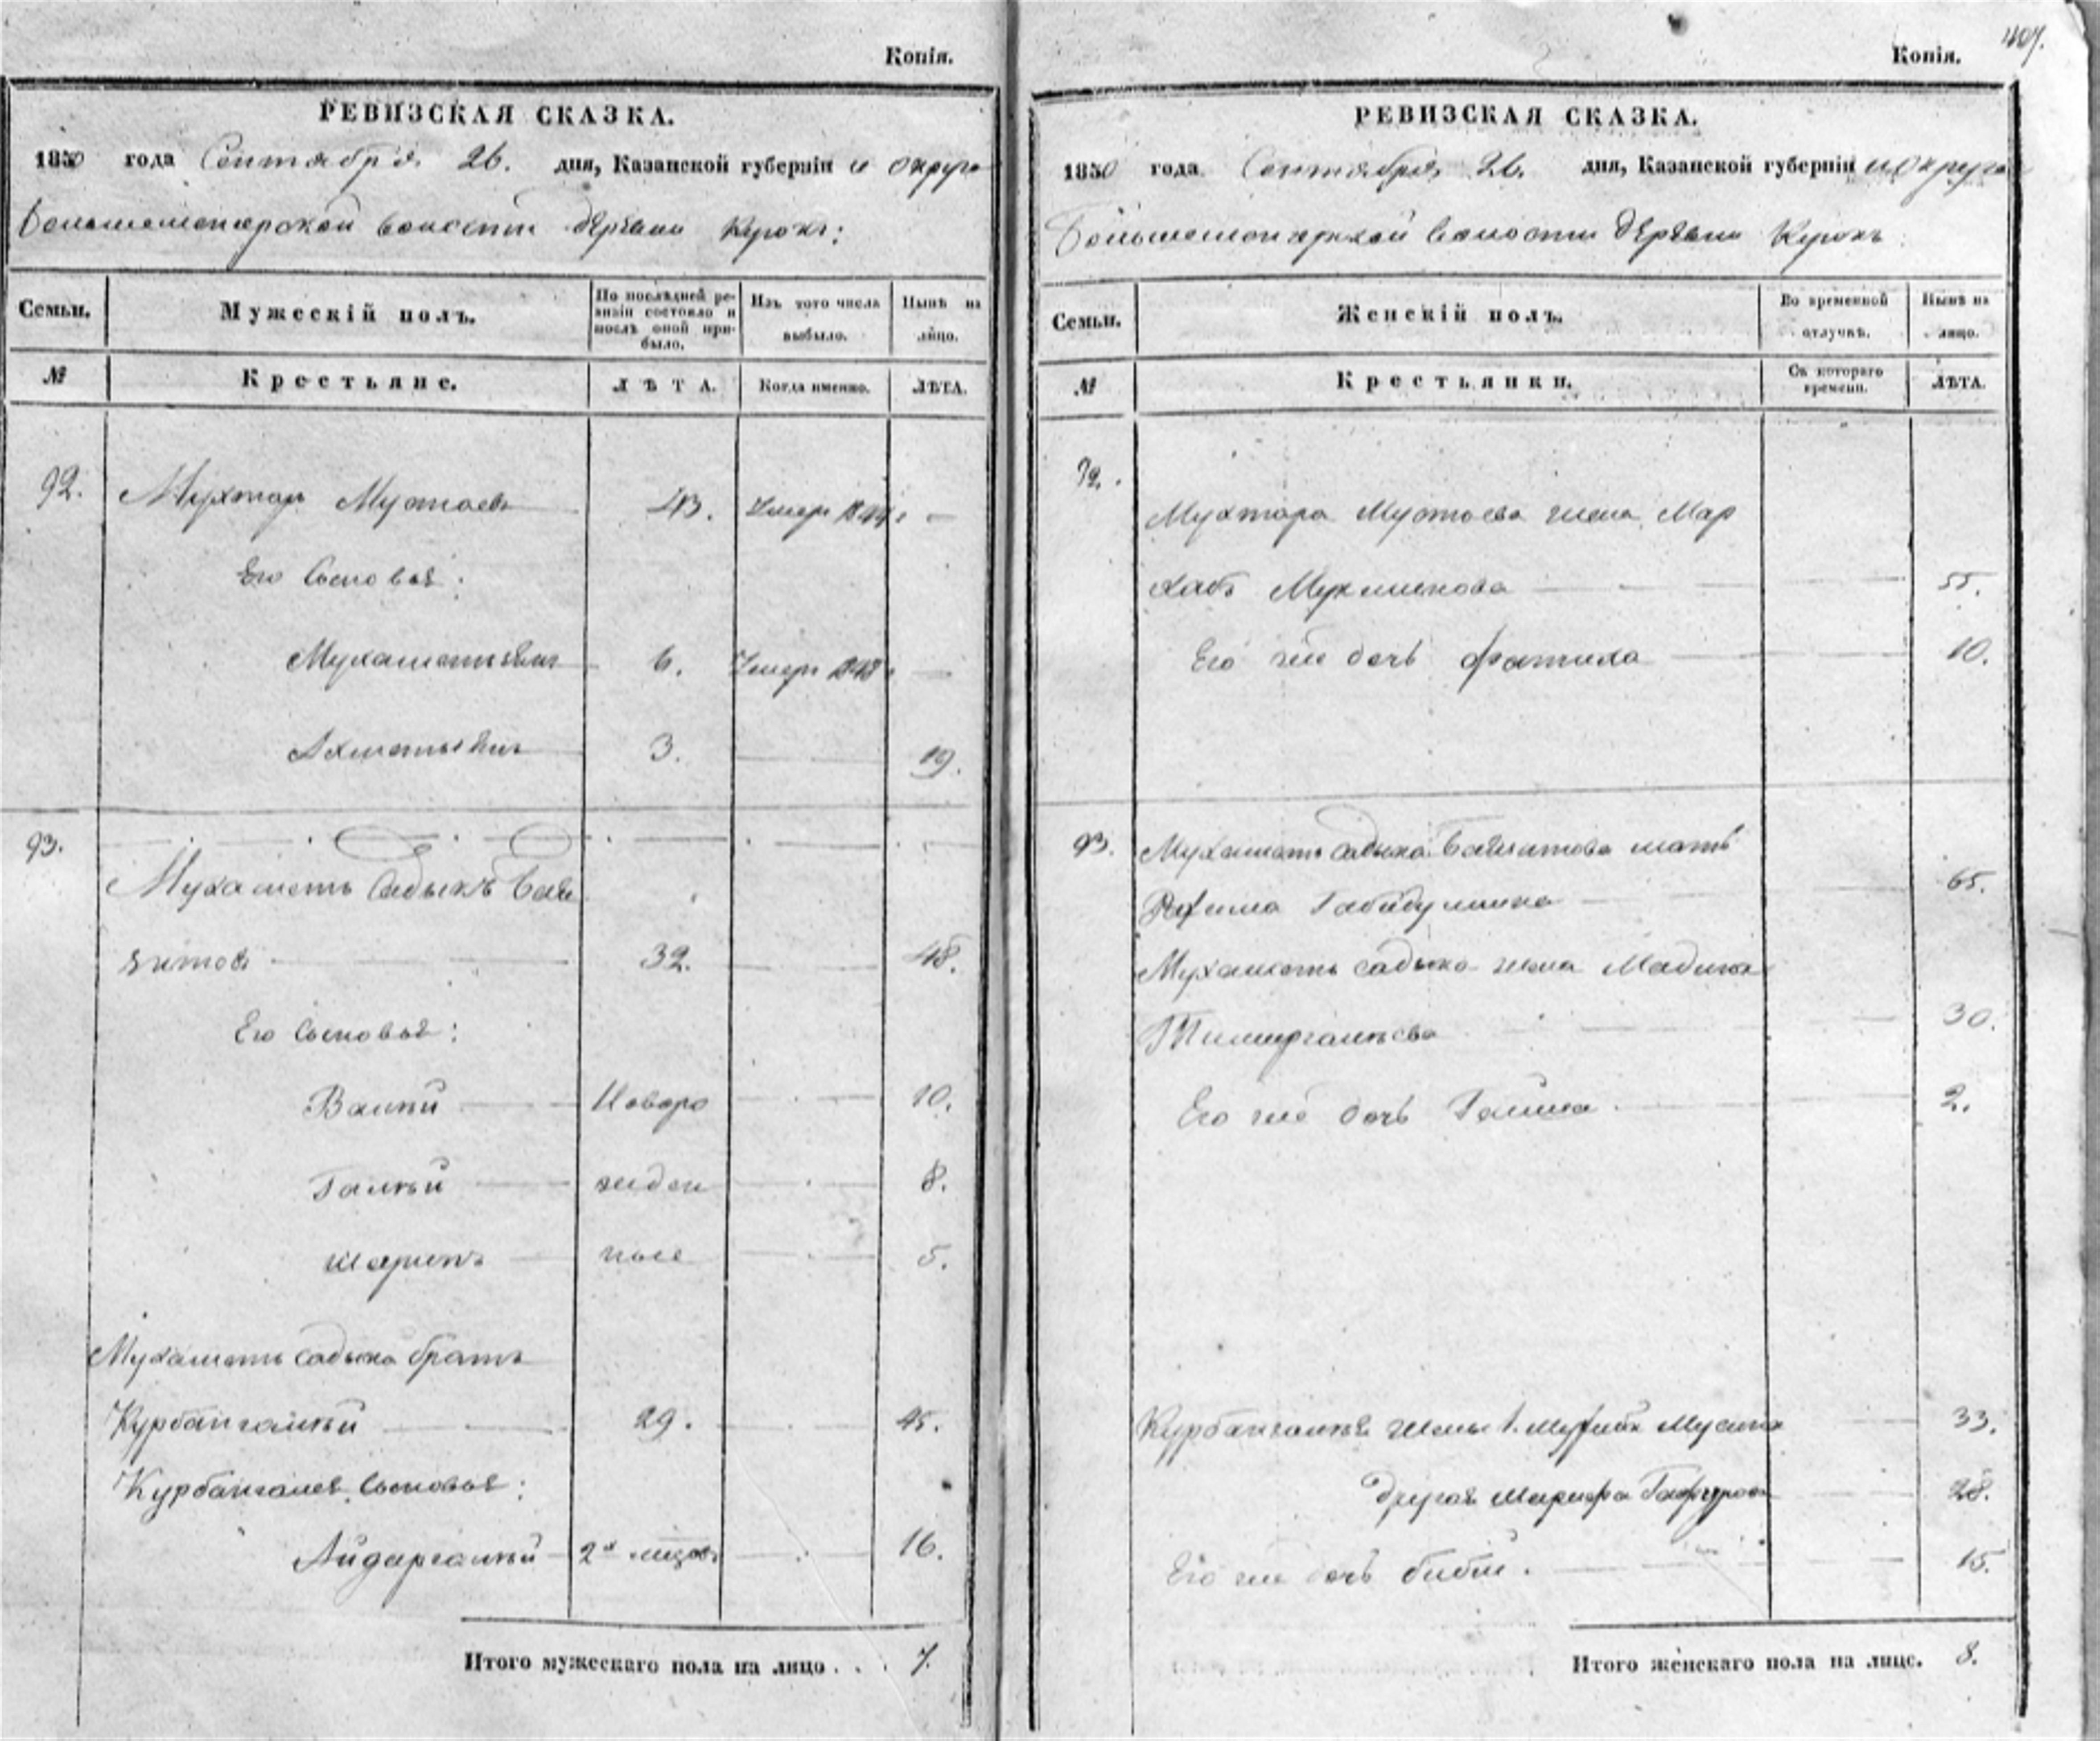 Копія.
РЕВИЗСКАЯ СКАЗКА.
1850 года Сентября 26. дня, Казанской губерніи и округа
волости деревни
Семьи.
Мужескій полъ.
По послѣдней ре-
визіи состояло и
послѣ оной при-
было.
Изъ того числа
выбыло.
Нынѣ на
лицо.
№
Крестьяне.
ЛѢТА.
Когда именно.
ЛѢТА.
92. Мухтаръ Мустаевъ 43. Умеръ 1844 —
Его Сыновья:
6. Умеръ 1848 —
3. 19.
93.
Мухаметь Садыкъ Бая
зитовъ 32. 48.
Его Сыновья:
Валій Новоро 10.
Галій жден 8.
Шарипъ ные 5.
Мухаметь садыка братъ
Курбангалій 29. 45.
Курбангалея Сыновья:
Айдаргалій 2х 16.
Итого мужескаго пола на лицо . . . 7.
407.
Копія.
РЕВИЗСКАЯ СКАЗКА.
1850 года Сентября 26. дня, Казанской губерніи и округа
волости деревни
Семьи.
Женскій полъ.
Во временной
отлучкѣ.
Нынѣ на
лицо.
№
Крестьянки.
Съ котораго
времени.
ЛѢТА.
92.
Мухтара Мустаева жена Мар
хабъ 55.
Его же дочь Фатиха 10.
93. Мухаметь садыка Баязитова мать
Габидуллина 65.
Мухаметь садыка жена Мадина
Тимиргалиева 30.
Его же дочь 2.
Курбангалея жены 1. Мусина 33.
другая Марифа Гафурова 28.
Его же дочь Биби. 15.
Итого женскаго пола на лице. 8.